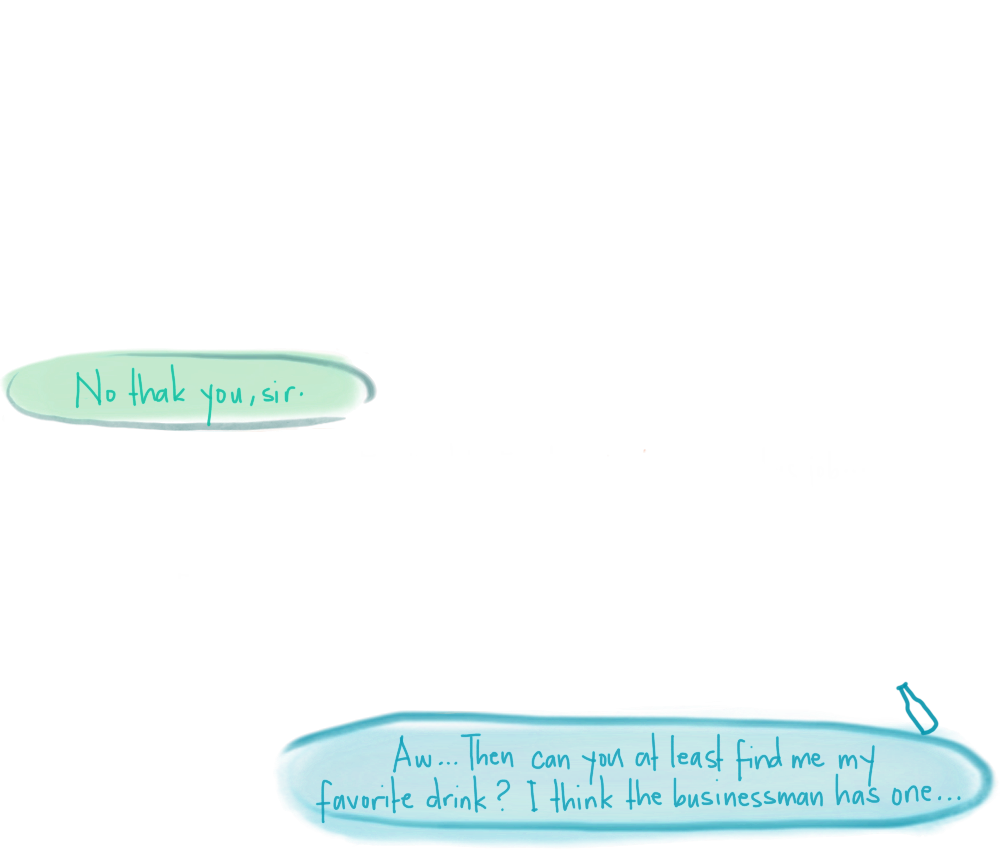 No thak you, sir.
Aw... Then can you at least find me my
favorite drink? I think the businessman has one...